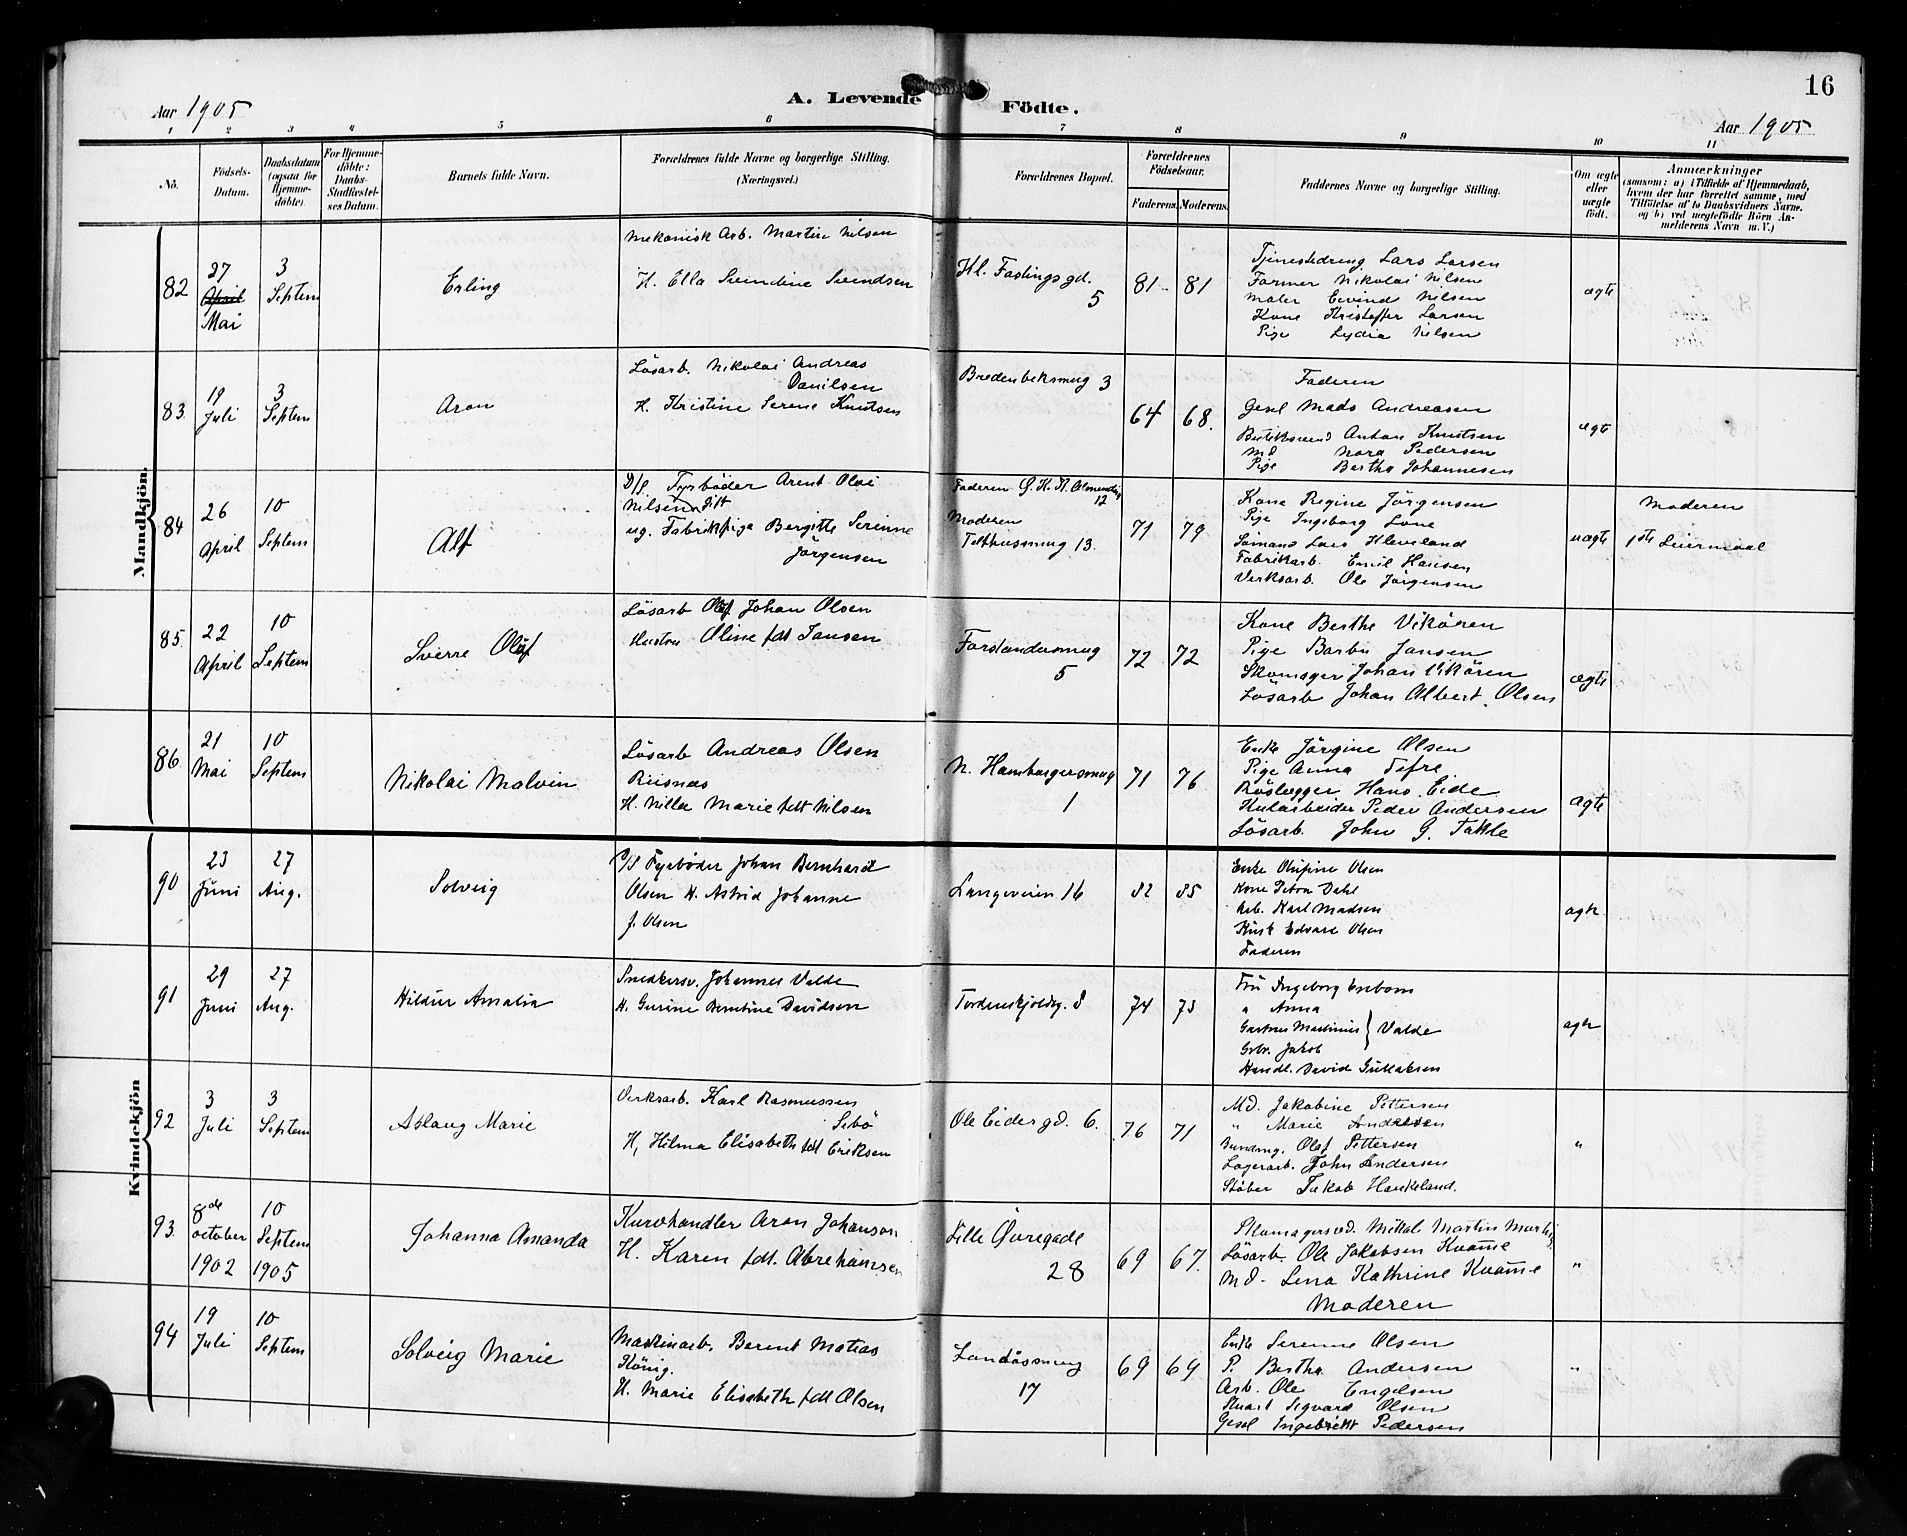 16
Aar 1905
A. Levende Födte.
Aar 1905
1 2 3 4 5 6 7 8 9 10 11
No.
Födsels-Datum.
Daabsdatum (ogsaa for Hjemme-döbte).
For Hjemme-döbte: Daabs-Stadfæstel-ses Datum.
Barnets fulde Navn.
Forældrenes fulde Navne og borgerlige Stilling.
(Næringsvei.)
Forældrenes Bopæl.
Forældrenes Födselsaar.
Faderens. Moderens.
Faddernes Navne og borgerlige Stilling.
Om ægte eller uægte födt.
Anmærkninger
(saasom: a) i Tilfælde af Hjemmedaab,
hvem der har forrettet samme, med
Tilföielse af to Daabsvidners Navne,
og b) ved uægtefödte Börn An-
melderens Navn m. V.)
Mandkjön.
82
27 April Mai
3 Septem
Erling
Mekanisk Arb. Martin Nilsen
H. Ella Svendine Svendsen
Kl. Fastingsgd.
5
81 81
Tjenestedreng Lars Larsen
Farmer Nikolai Nilsen
Maler Eivind Nilsen
Kone Kristoffer Larsen
Pige Lydia Nilsen
ægte
83.
19 Juli
3 Septem
Aron
Lösarb. Nikolai Andreas
Danilsen
H. Kristine Serene Knutsen
Bredenbeksmug 3
64 68.
Faderen
Gesel Mads Andreasen
Anton Knutsen
Md Nora Pedersen
Pige Bertha Johannesen
ægte
84
26 April
10 Septem
Alf
D/S. Fyrbøder Arent Olai
Nilsen Gift
ug. Fabrikpige Bergitte Serinne
Jörgensen
Faderen G. K. N. Almending
12
Moderen
Telthussmug 13.
71 79
Kone Regine Jörgensen
Pige Ingeborg Lone
Sömand Lars Kleveland
Fabrikarb. Emil Hansen
Verksarb. Ole Jörgensen
uægte
Moderen
1ste Leiermaal
85.
22 April
10 Septem
Sverre Olaf
Lösarb Olaf Johan Olsen
Hustru Oline fdt Jansen
Forstandersmug
5
72 72
Kone Berthe Vikören
Pige Barbu Jansen
Skomager Johan Vikören
Lösarb Johan Albert Olsen
ægte
86.
21 Mai
10 Septem
Nikolai Malvin
Lösarb Andreas Olsen
Riisnæs
H. Nilla Marie fdt Nilsen
N. Hamburgersmug
1
71 76
Enke Jörgine Olsen
Pige Anna Tefre
Rörlægger Hans Eide
Kularbeider Peder Andersen
Lösarb. John G. Takle
ægte
Kvindekjön
90
23 Juni
27 Aug.
Solveig
D/S Fyrbøder Johan Bernhard
Olsen H. Astrid Johanne
f. Olsen
Langeveien 16
82 85
Enke Olufine Olsen
Kone Petra Dahl
Arb. Karl Madsen
Kusk Edvard Olsen
Faderen
ægte
91
29 Juni
27 Aug.
Hildur Amalia
Snedkersv. Johannes Valde
H. Gurine Berntine Davidsen
Tordenskjoldsg. 8
74 73
Fru Ingeborg
" Anna
Gartner Martinius } Valde
Jakob
Handl. David Gullaksen
ægte
92
3 Juli
3 Septem
Aslaug Marie
Verksarb. Karl Rasmussen
Sebö
H, Hilma Elisabeth fdt Eriksen
Ole Eidesgd. 6.
76 71
Md. Jakobine Pettersen
" Marie Andersen
Olaf Pettersen
Lagerarb. John Andersen
Støber Jakob Haukeland.
"
93.
8de October 1902
10 Septem 1905
Johanna Amanda
Kurvhandler Aron Johanson
H. Karen fdt. Abrehamsen
Lille Øvregade
28
69 67.
Skomagersvd. Mikkal Martin
Lösarb. Ole Jakobsen Kvamme
Md. Lena Kathrine Kvamme
Moderen
"
94
19 Juli
10 Septem
Solveig Marie
Maskinarb. Berent Matias
König.
H. Marie Elisabeth fdt Olsen
Landåssmug
17
69 69
Enke Serenne Olsen
P. Bertha Andersen
Arb. Ole Engelsen
Stuart Segvard Olsen
Gesel Ingebrikt Pedersen
"